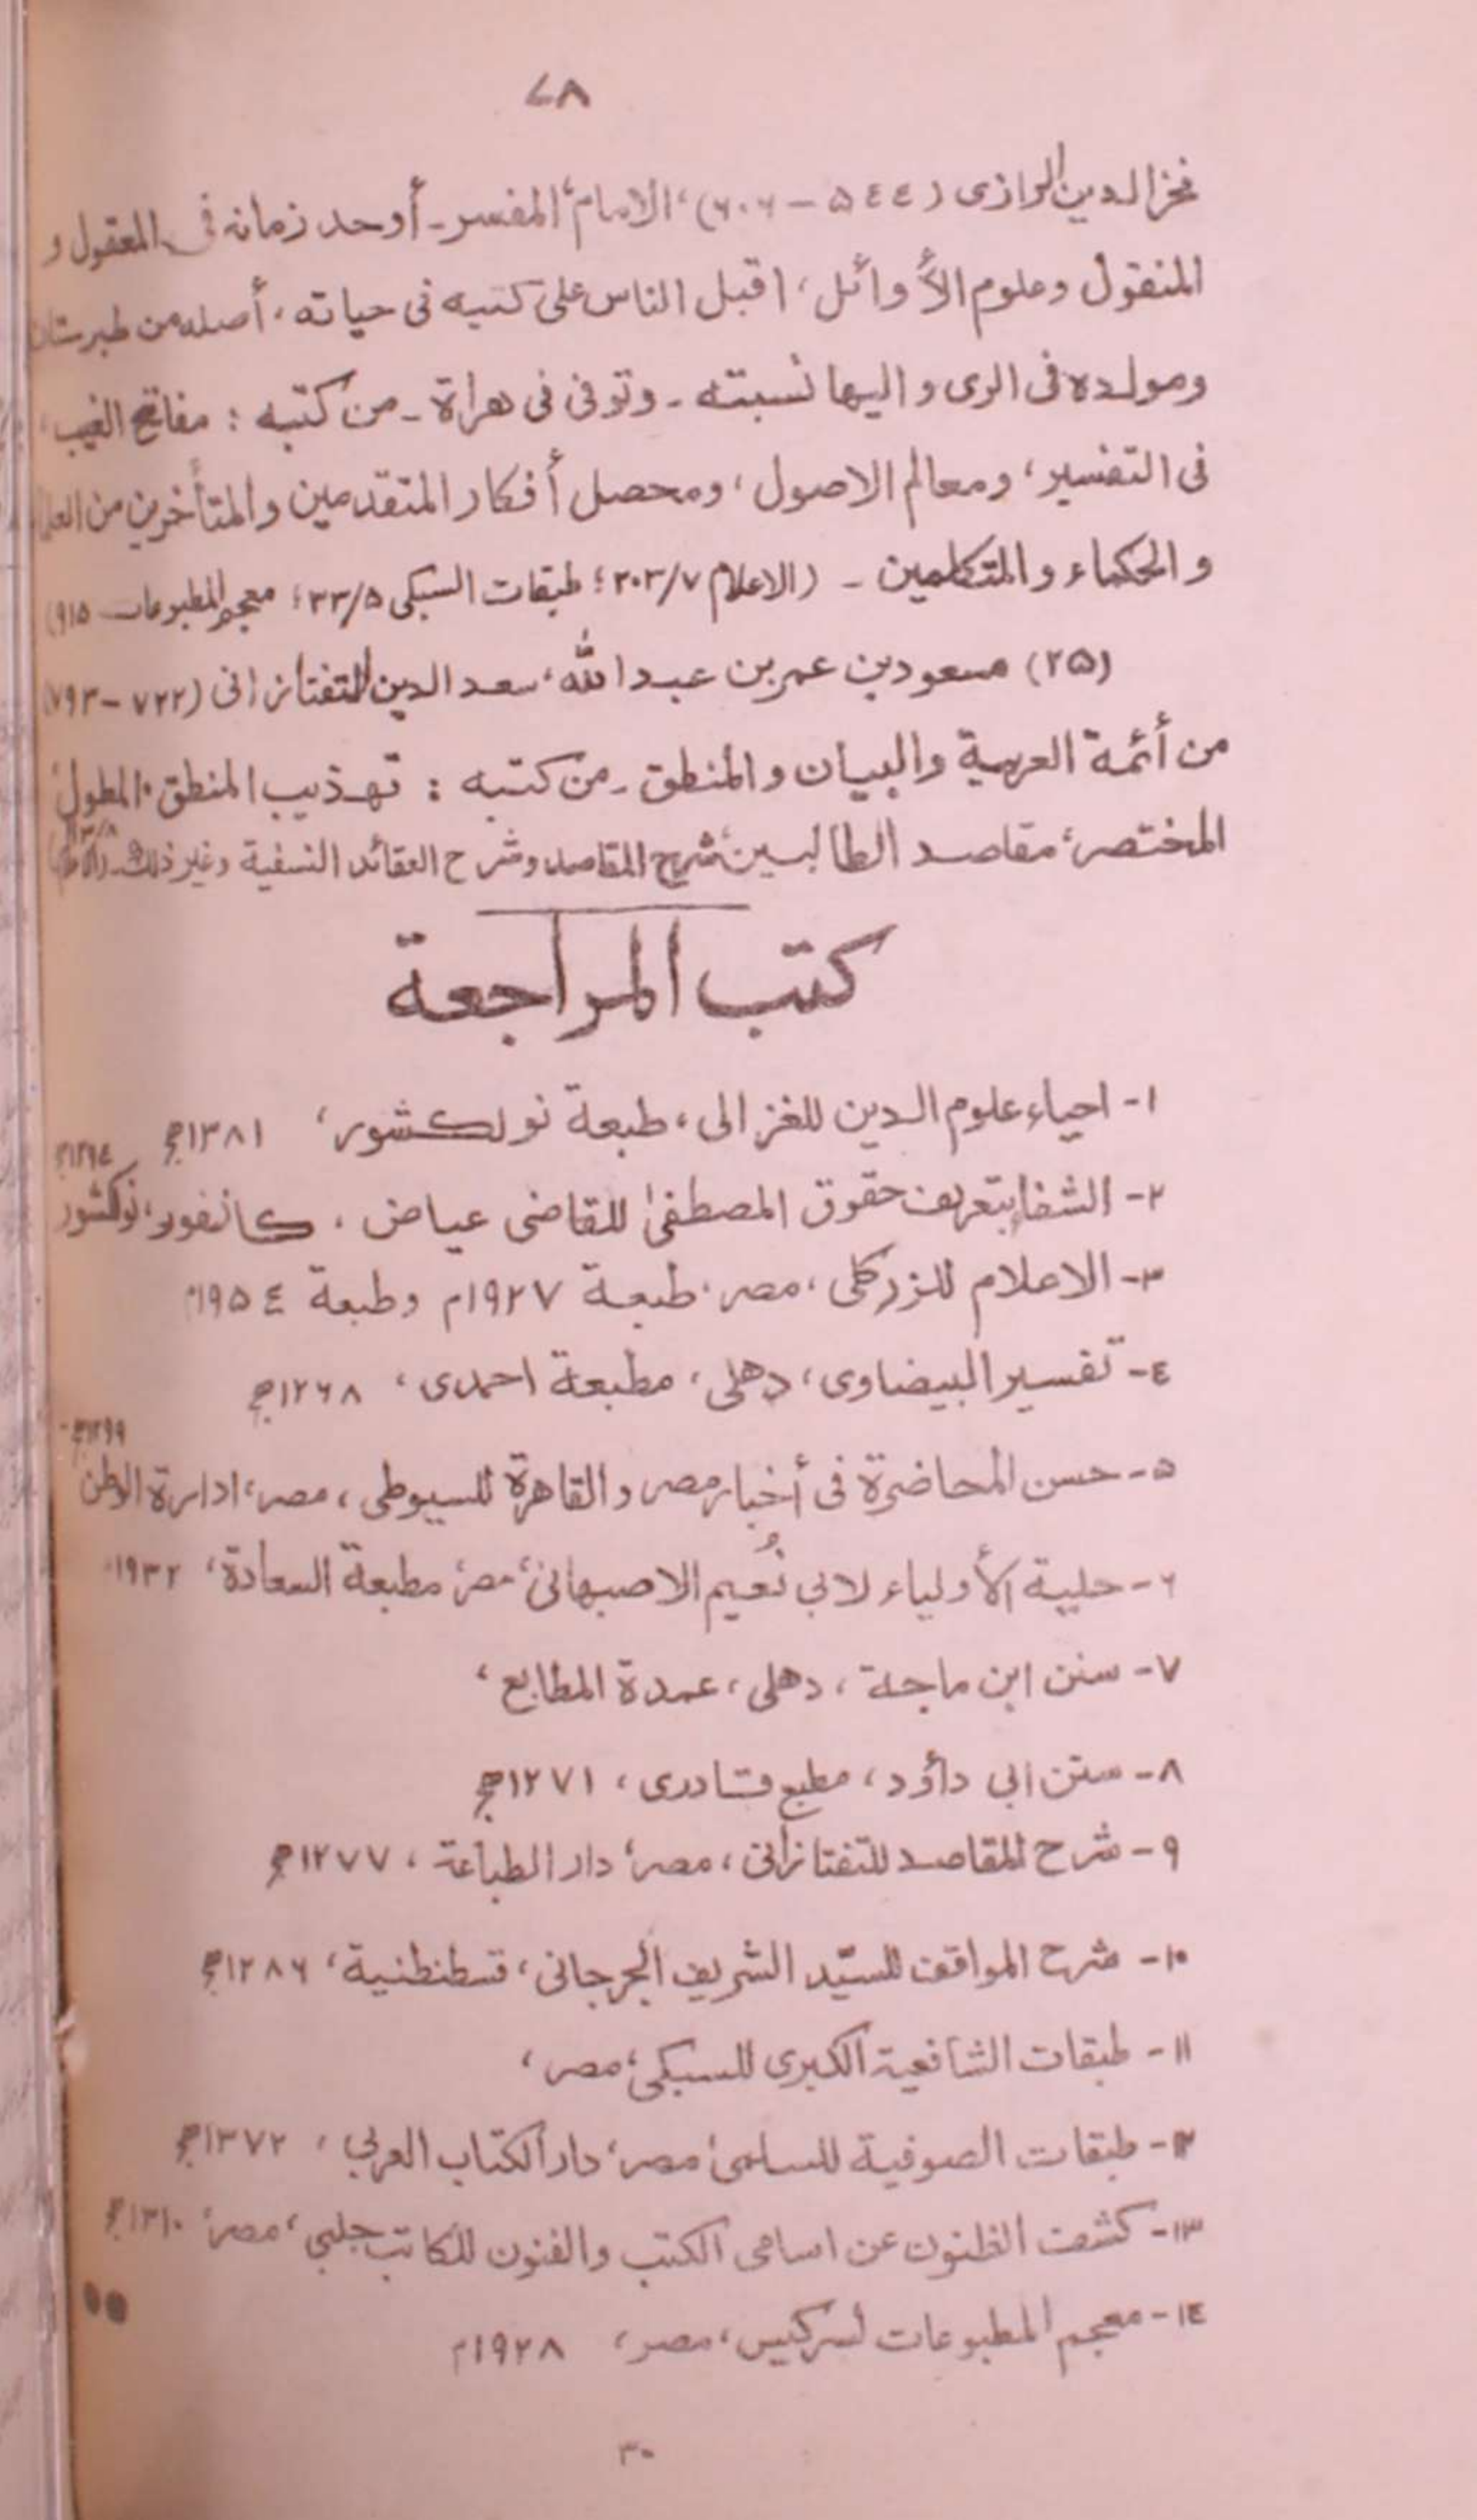 ۷۸
فخر الدين الرازى (٥٤٤ – ٦٠٦)، الامام المفسر۔ أوحد زمانه فى المعقول و
المنقول وعلوم الأوائل، اقبل الناس على كتبه فى حياته، أصله من طبرستان
ومولده فى الرى و اليها نسبته ۔ وتوفى فى هراة ۔ من كتبه : مفاتح الغيب،
فى التفسير، ومعالم الاصول، ومحصل أفكار المتقدمين والمتأخرين من العلماء
و الحكماء و المتكلمين ۔ (الاعلام ۲۰۳/۷؛ طبقات السبكى ۳۳/۵؛ معجم المطبوعات ۹۱۵)
(۲۵) مسعود بن عمر بن عبد الله، سعد الدين التفتازانى (۷۲۲ – ۷۹۳)
من أئمة العربية والبيان و المنطق ۔ من كتبه : تهذيب المنطق، المطول،
المختصر، مقاصد الطالبين، شرح المقاصد وشرح العقائد النسفية وغير ذلك۔
كتب المراجعة
١- احياء علوم الدين للغزالى، طبعة نولكشور، ۱۳۸۱ھ
۲- الشفا بتعريف حقوق المصطفىٰ للقاضى عياض، كانفور، نولكشور
۳- الاعلام للزركلى، مصر، طبعة ۱۹۲۷م وطبعة ۱۹۵٤م
٤- تفسير البيضاوى، دهلى، مطبعة احمدى، ۱۲۶۸ھ
۵- حسن المحاضرة فى أخبار مصر و القاهرة للسيوطى، مصر، ادارة الوطن ۱۲۹۹ھ
۶- حلية الأولياء لابي نُعيم الاصبهانى، مصر، مطبعة السعادة، ۱۹۳۲
۷- سنن ابن ماجة، دهلى، عمدة المطابع،
۸- سنن ابى داؤد، مطبع قادرى، ۱۲۷۱ھ
۹- شرح المقاصد للتفتازانى، مصر، دار الطباعة، ۱۲۷۷ھ
۱۰- شرح المواقف للسيّد الشريف الجرجانى، قسطنطنية، ۱۲۸۶ھ
۱۱- طبقات الشافعية الكبرى للسبكى، مصر،
۱۲- طبقات الصوفية للسلمى، مصر، دار الكتاب العربي، ۱۳۷۲ھ
۱۳- كشف الظنون عن اسامى الكتب والفنون للكاتب جلبي، مصر، ۱۳۱۰ھ
۱٤- معجم المطبوعات لسركيس، مصر، ۱۹۲۸م
۳۰